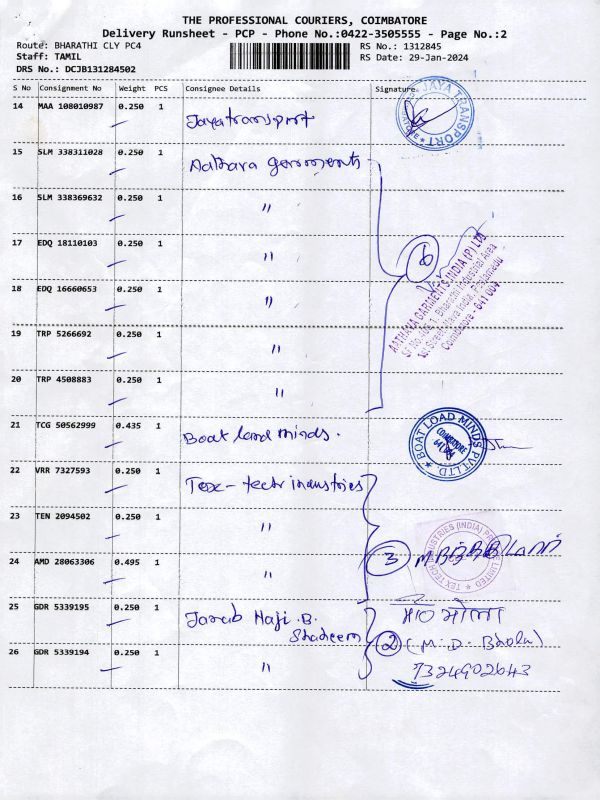 THE PROFESSIONAL COURIERS, COIMBATORE
Delivery Runsheet - PCP - Phone No.:0422-3505555 - Page No.:2
Route: BHARATHI CLY PC4
RS No.: 1312845
Staff: TAMIL
RS Date: 29-Jan-2024
DRS No.: DCJB131284502
S No Consignment No Weight PCS Consignee Details Signature
14 MAA 108010987 0.250 1 Jayatransport
JAYA TRANSPORT
15 SLM 338311028 0.250 1 Aathava garments
16 SLM 338369632 0.250 1 "
17 EDQ 18110103 0.250 1 "
6
AATHAVA GARMENTS INDIA (P) LTD
Bharathi Industrial Area
1st Street, Jeeva India, Peelamedu
Coimbatore - 641 004
18 EDQ 16660653 0.250 1 "
19 TRP 5266692 0.250 1 "
20 TRP 4508883 0.250 1 "
21 TCG 50562999 0.435 1 Boat load minds.
BOAT LOAD MINDS PVT LTD.
COIMBATORE
22 VRR 7327593 0.250 1 Tex-tech industries
23 TEN 2094502 0.250 1 "
TEX TECH INDUSTRIES (INDIA) PRIVATE LIMITED
24 AMD 28063306 0.495 1 "
3
25 GDR 5339195 0.250 1 Janab Haji.B.
Shadeem
भोला
2 (M.D. Bhola)
26 GDR 5339194 0.250 1 "
7324902643